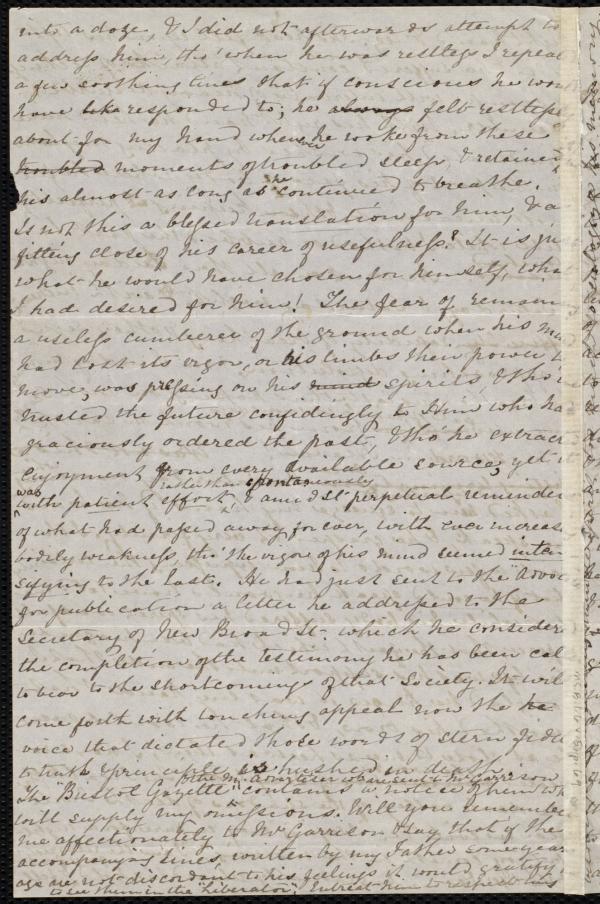 into a doze, & I did not afterwards attempt to
address him, tho' when he was restless I repeat
a few soothing lines that if conscious he wou
have like responded to; he always felt restlessly
about for my hand whenever he woke from these
troubled moments of troubled sleep & retained
his almost as long as he continued to breathe.
Is not this a blessed translation for him, & a
fitting close of his career of usefulness? It is jus
what he would have chosen for himself, what
I had desired for him! The fear of remain
a useless cumberer of the ground when his
had lost its vigor, or his limbs their power to
move, was pressing on his mind spirits, & tho'
trusted the future confidingly to Him who ha
graciously ordered the past, & tho' he extract
enjoyment from every available source, yet it
rather than spontaneously
was with patient effort, & amidst perpetual reminder
of what had passed away for ever, with ever increas
bodily weakness, tho' the vigor of his mind seemed inten
sifying to the last. He had just sent to the "Advoc
for publication a letter he addressed to the
Secretary of New Broad St. which he consider
the completion of the testimony he has been cal
to bear to the shortcomings of that Society. It wil
come forth with touching appeal now the he
voice that dictated those words of stern
to truth & principle is hushed in death.
The "Bristol Gazette" contains a notice of him wh
will supply my omissions. Will you remembe
me affectionately to Mr Garrison & say that if the
accompanying lines, written by my Father some year
ago are not discordant to his feelings it would gratify
to see them in the "Liberator". Entreat him to respect this